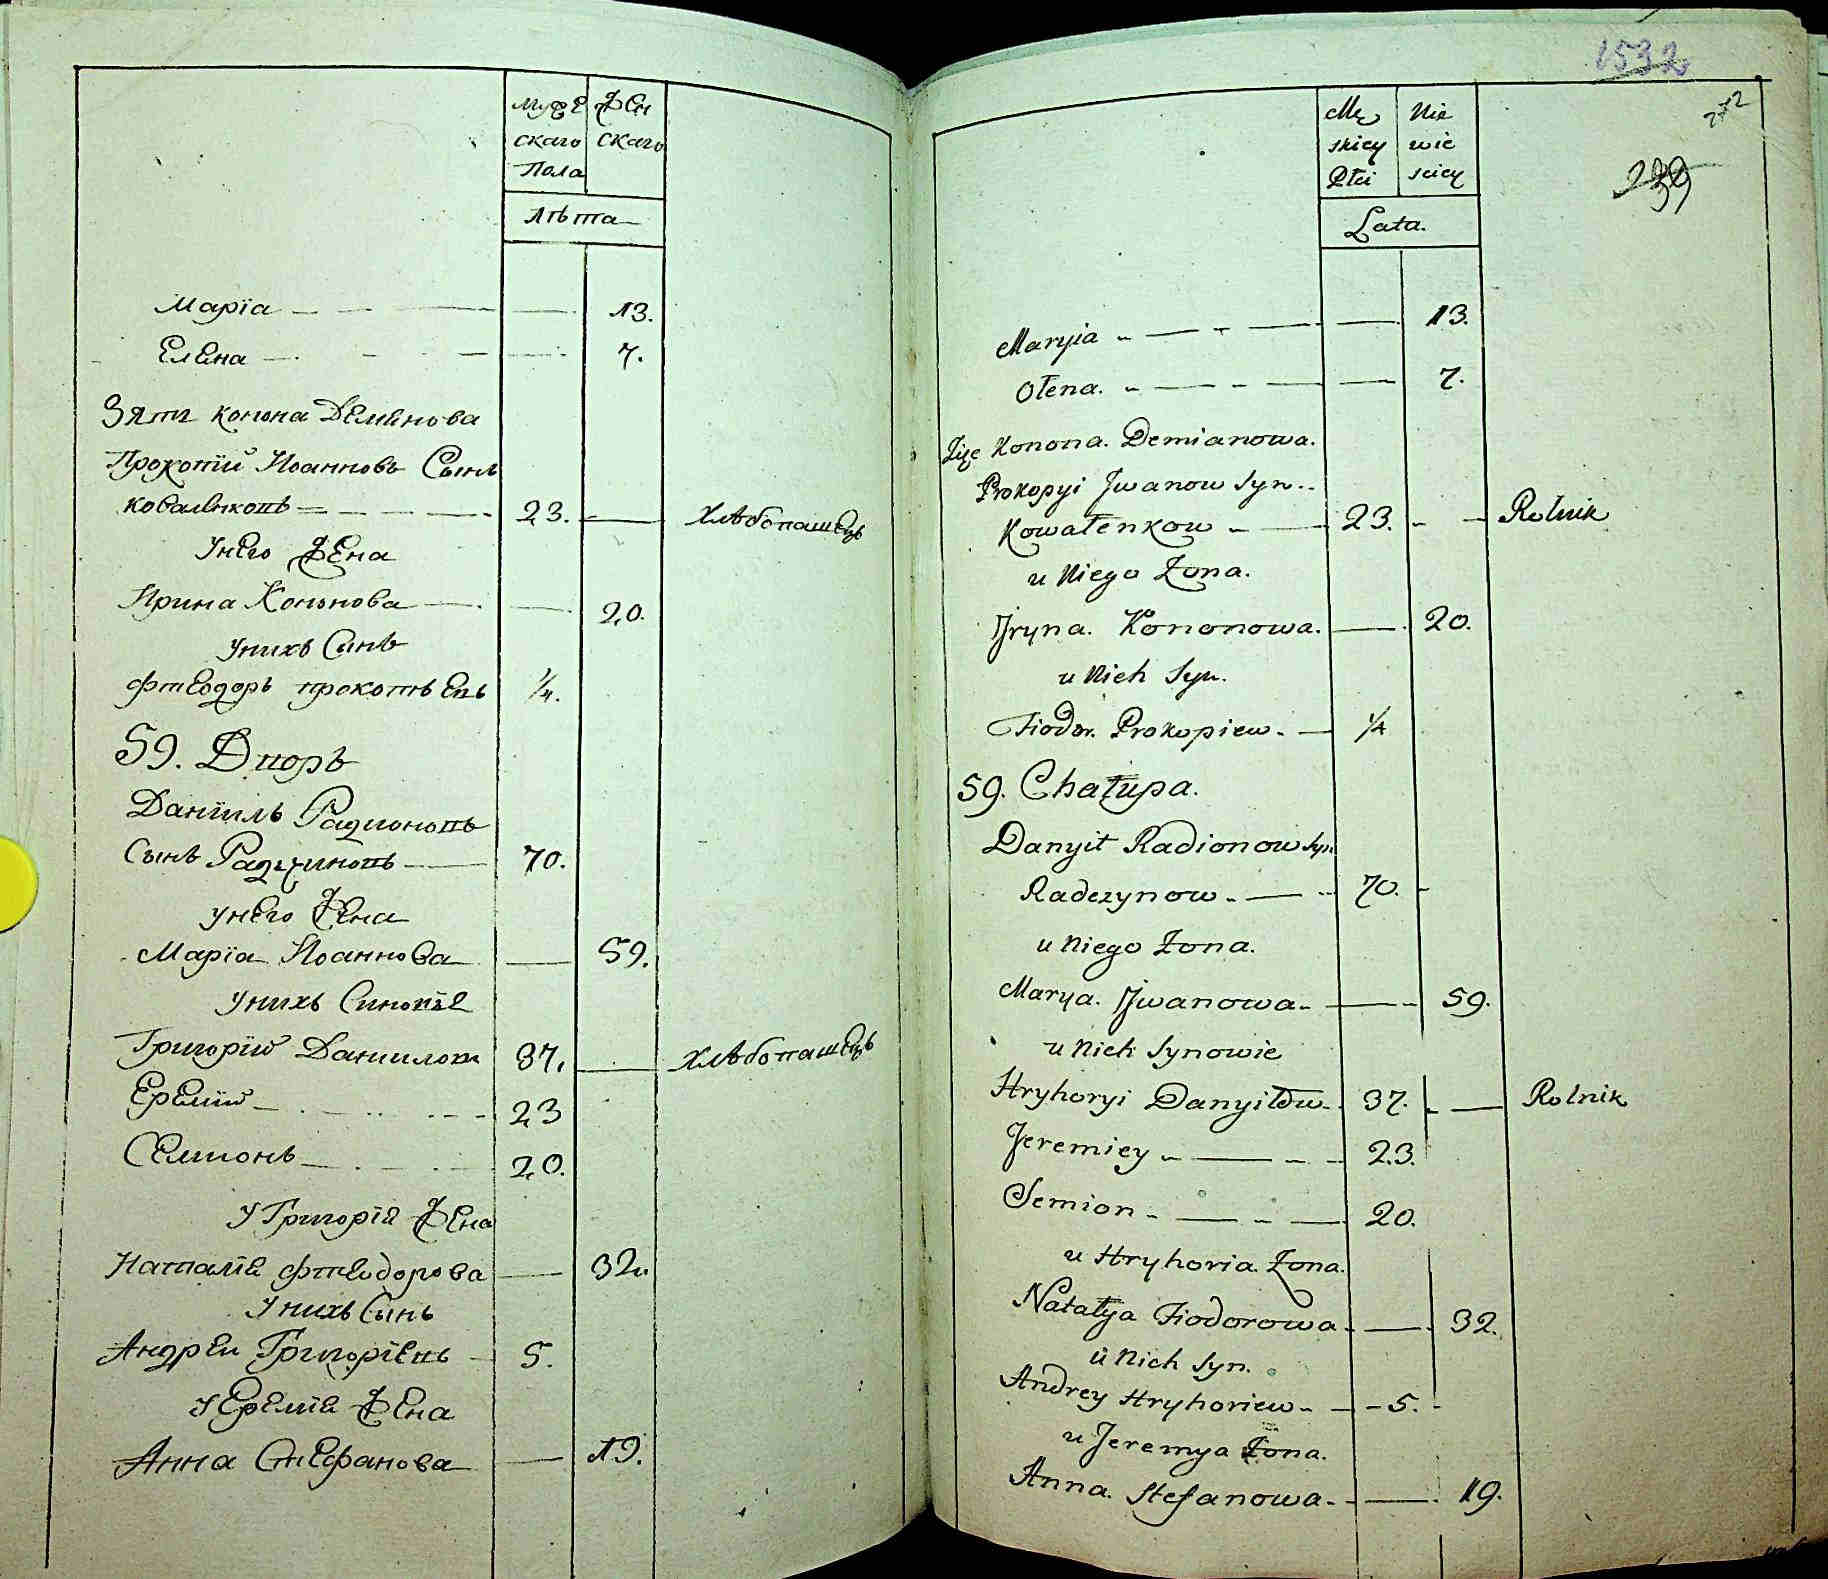 Мужескаго Пола
Женскаго
Лѣта
Марїа 13.
Елена 7.
Зять Конона Деміянова
Прокопїй Іоанновъ Сынъ
Коваленковъ 23. Хлѣбопашецъ
У него Жена
Ирина Кононова 20.
У нихъ Сынъ
Фтеодоръ Прокопѣевъ 1/4.
59. Дворъ
Данїилъ Радионовъ
Сынъ Радчиновъ 70.
У него Жена
Марїа Иоаннова 59.
У нихъ Синовїе
Григорїй Даниловъ 37. Хлѣбопашецъ
Еремїй 23
Семионъ 20.
У Григорїя Жена
Наталїя Фтеодорова 32.
У нихъ Сынъ
Андрей Григорїевъ 5.
У Еремїя Жена
Анна Стефанова 19.
1532
272
239
Męskiey Płci
Niewieściey
Lata.
Maryia 13.
Ołena. 7.
Zięć Konona. Demianowa.
Prokopyi Jwanow Syn.
Kowałenkow 23. Rolnik
u Niego Żona.
Jryna. Kononowa. 20.
u Nich Syn.
Fiodor. Prokopiew. 1/4
59. Chałupa.
Danyił Radionow Syn
Radczynow 70.
u Niego Żona.
Marya. Jwanowa 59.
u Nich Synowie
Hryhoryi Danyiłow 37. Rolnik
Jeremiey 23.
Semion 20.
u Hryhoria Żona.
Natałya Fiodorowa 32.
u Nich Syn.
Andrey Hryhoriew 5.
u Jeremya Żona.
Anna. Stefanowa 19.